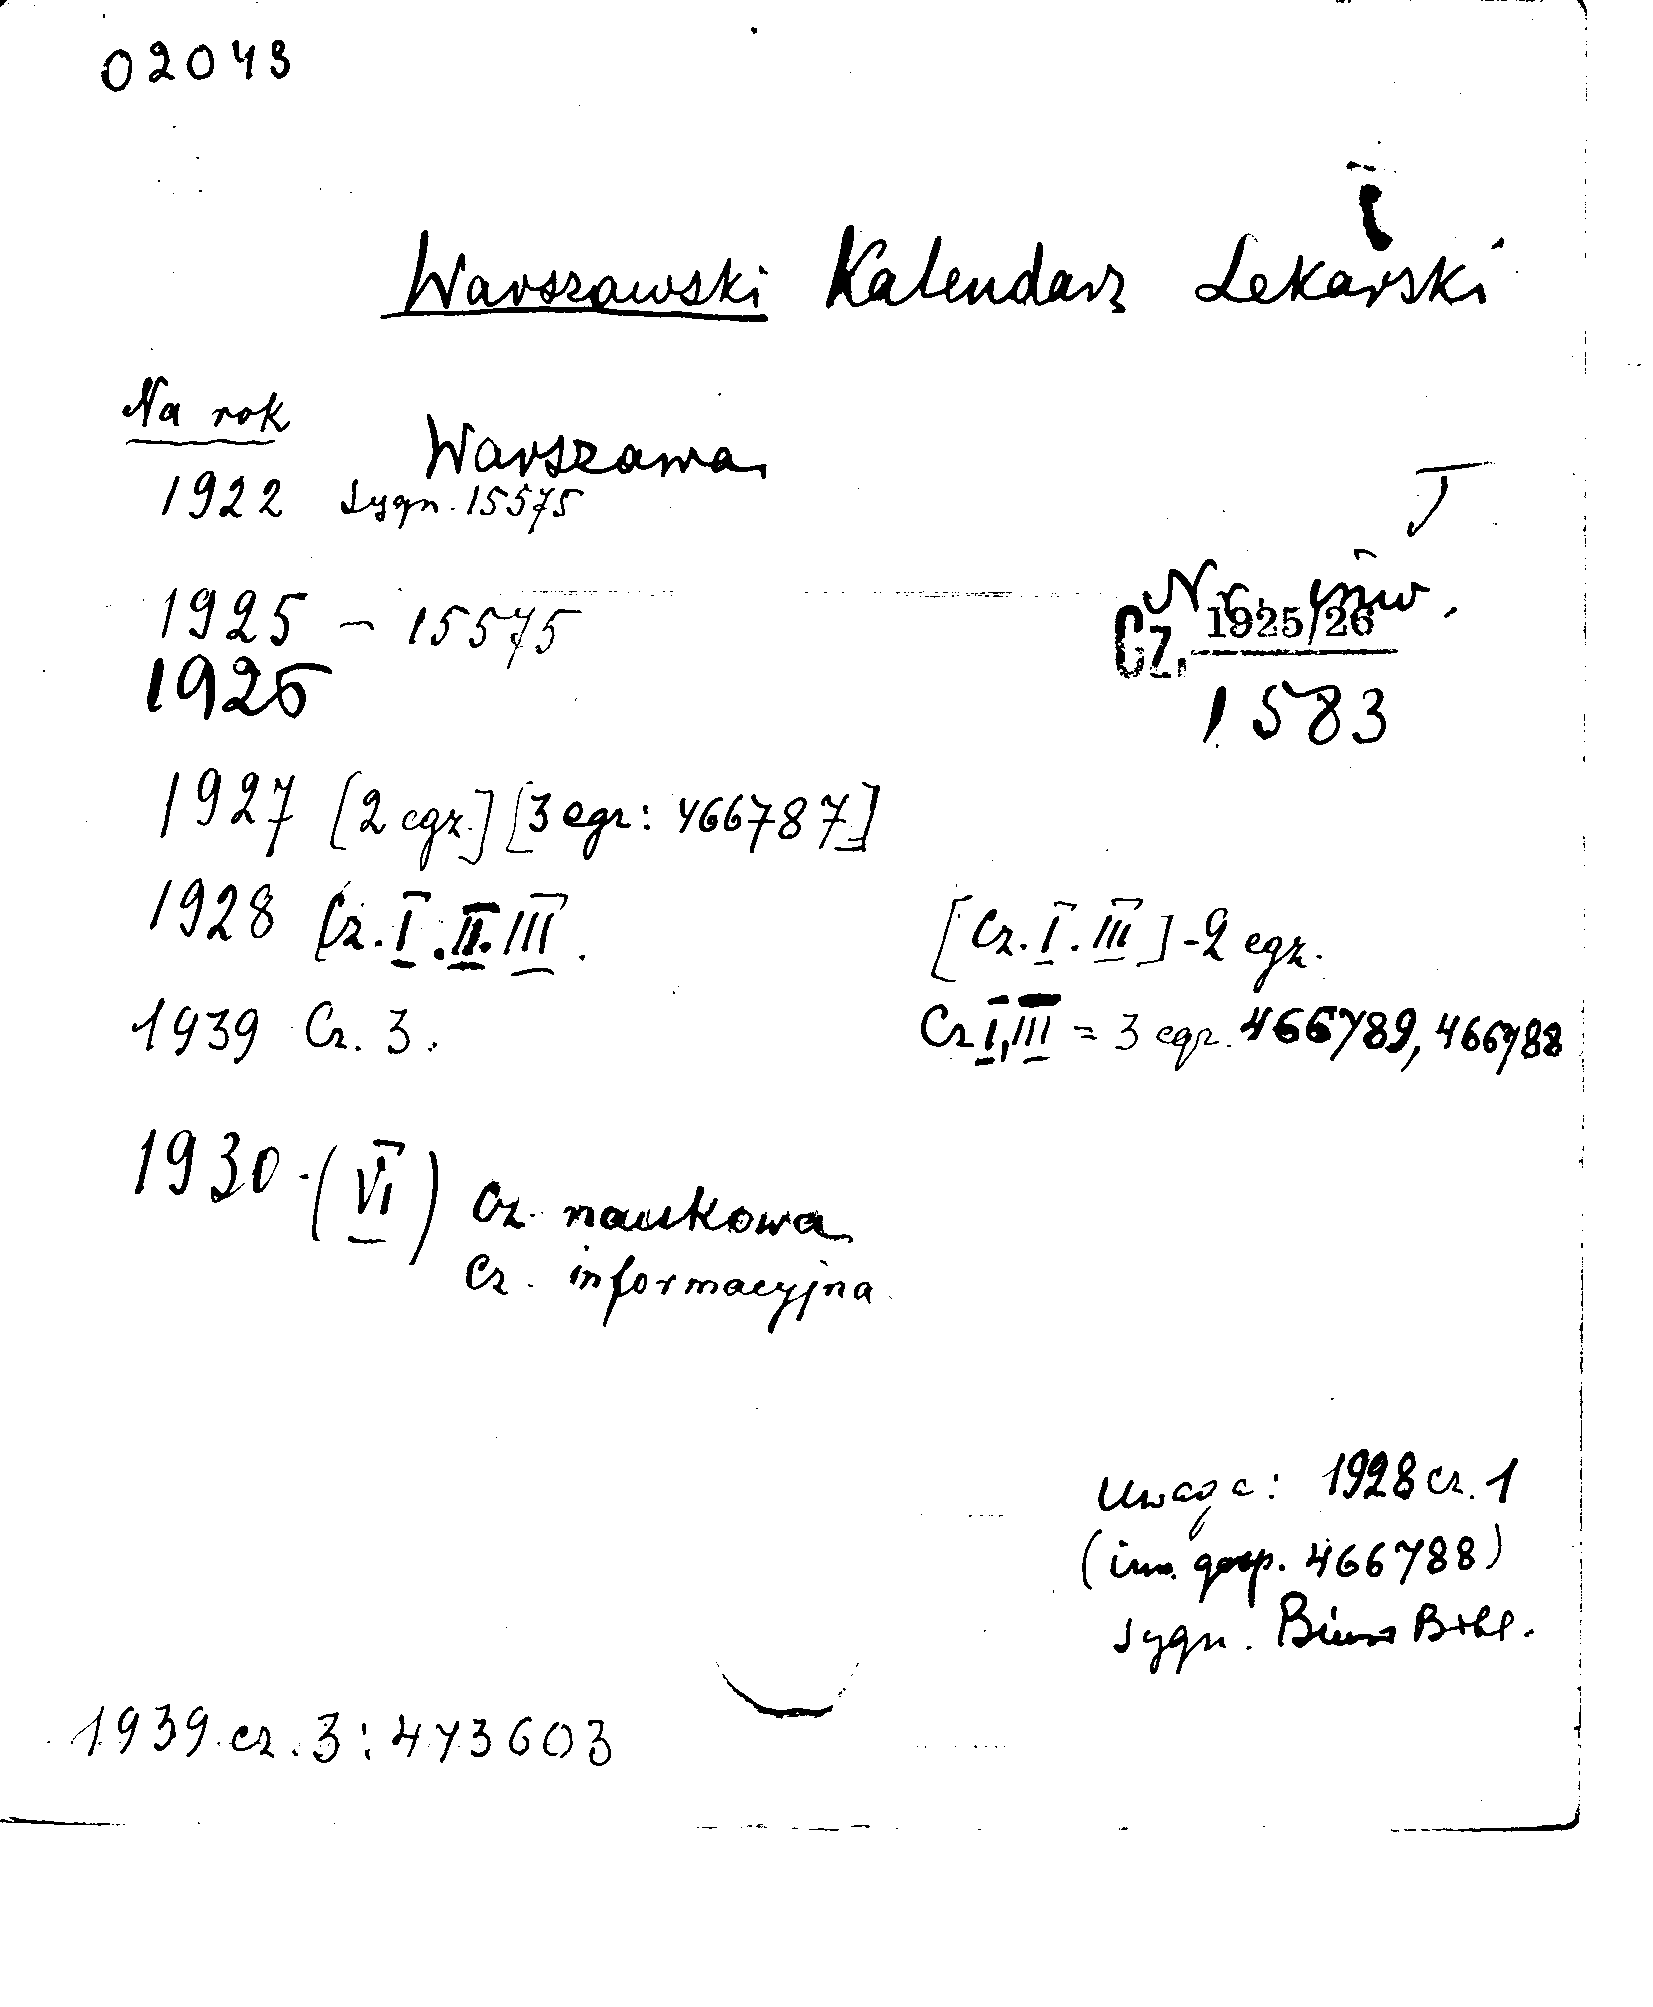 02043
Warszawski Kalendarz Lekarski
Na rok
Warszawa
1922 sygn. 15575
T
Nr. inw.
1925 – 15575
Cz. 1925/26
1926
1583
1927 [2 egz.] [3 egz: 466787]
1928 Cz. I. II. III. [Cz. I. III] - 2 egz.
1939 Cz. 3. Cz I, III = 3 egz. 466789, 466788
1930 - (VI) Cz. naukowa
Cz. informacyjna
Uwaga: 1928 cz. 1
(inw. gosp. 466788)
sygn. Biuro Bibl.
1939 cz. 3: 473603